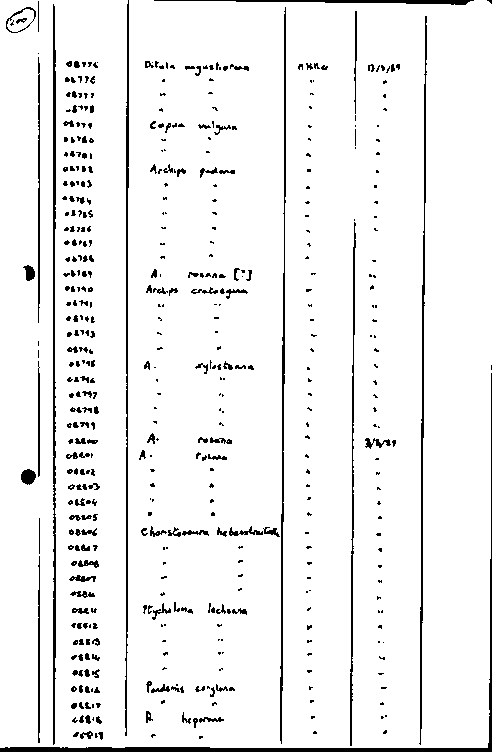 200
08775 Ditula angustiorana M Hillier 13/3/89
08776 " " " "
08777 " " " "
08778 " " " "
08779 Capua vulgana " "
08780 " " " "
08781 " " " "
08782 Archips podana " "
08783 " " " "
08784 " " " "
08785 " " " "
08786 " " " "
08787 " " " "
08788 " " " "
08789 A. rosana [?] " "
08790 Archips crataegana " "
08791 " " " "
08792 " " " "
08793 " " " "
08794 " " " "
08795 A. xylosteana " "
08796 " " " "
08797 " " " "
08798 " " " "
08799 " " " "
08800 A. rosana " 3/3/89
08801 A. rosana " "
08802 " " " "
08803 " " " "
08804 " " " "
08805 " " " "
08806 Choristoneura hebenstreitella " "
08807 " " " "
08808 " " " "
08809 " " " "
0881 " " " "
08811 Ptycholoma lecheana " "
08812 " " " "
08813 " " " "
08814 " " " "
08815 " " " "
08816 Pandemis corylana " "
08817 " " " "
08818 P. heparana " "
08819 " " " "